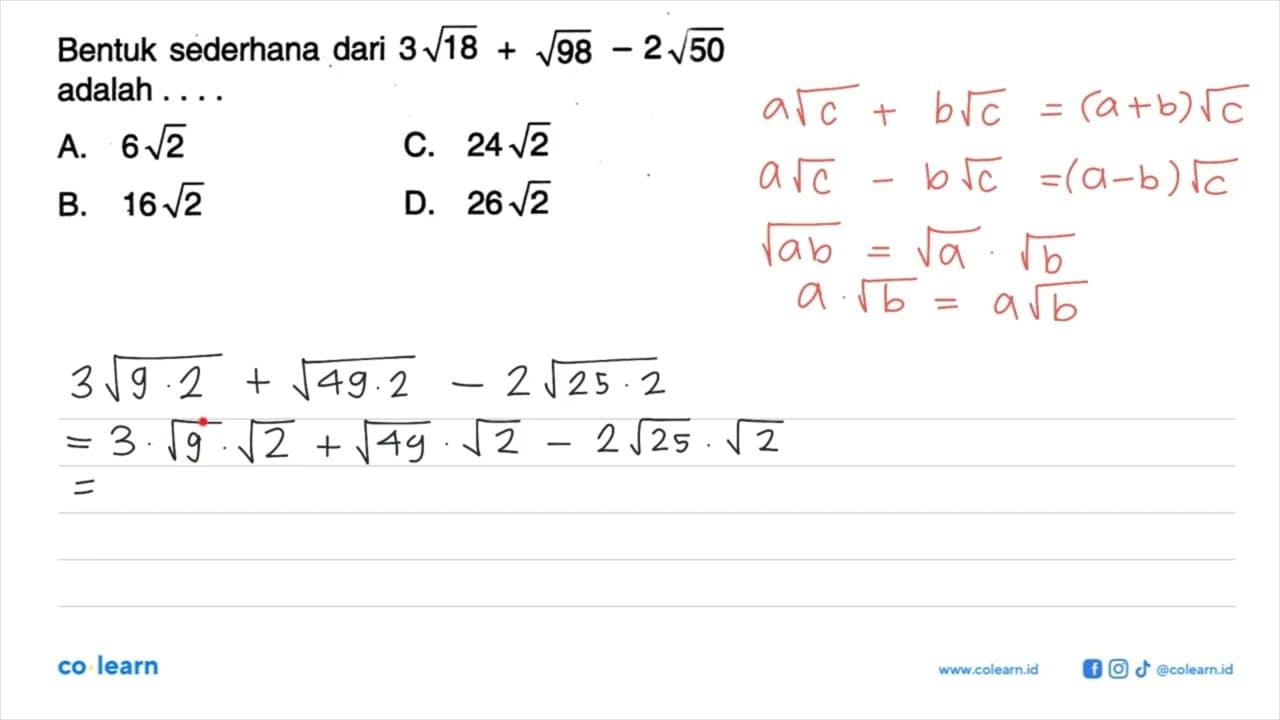 Bentuk sederhana dari 3√18 + √98 − 2√50
adalah . . . .
A. 6√2
B. 16√2
C. 24√2
D. 26√2
a√c + b√c = (a+b)√c
a√c − b√c = (a−b)√c
√ab = √a · √b
a·√b = a√b
3√9·2 + √49·2 − 2√25·2
= 3·√9·√2 + √49·√2 − 2√25·√2
=
co·learn
www.colearn.id @colearn.id